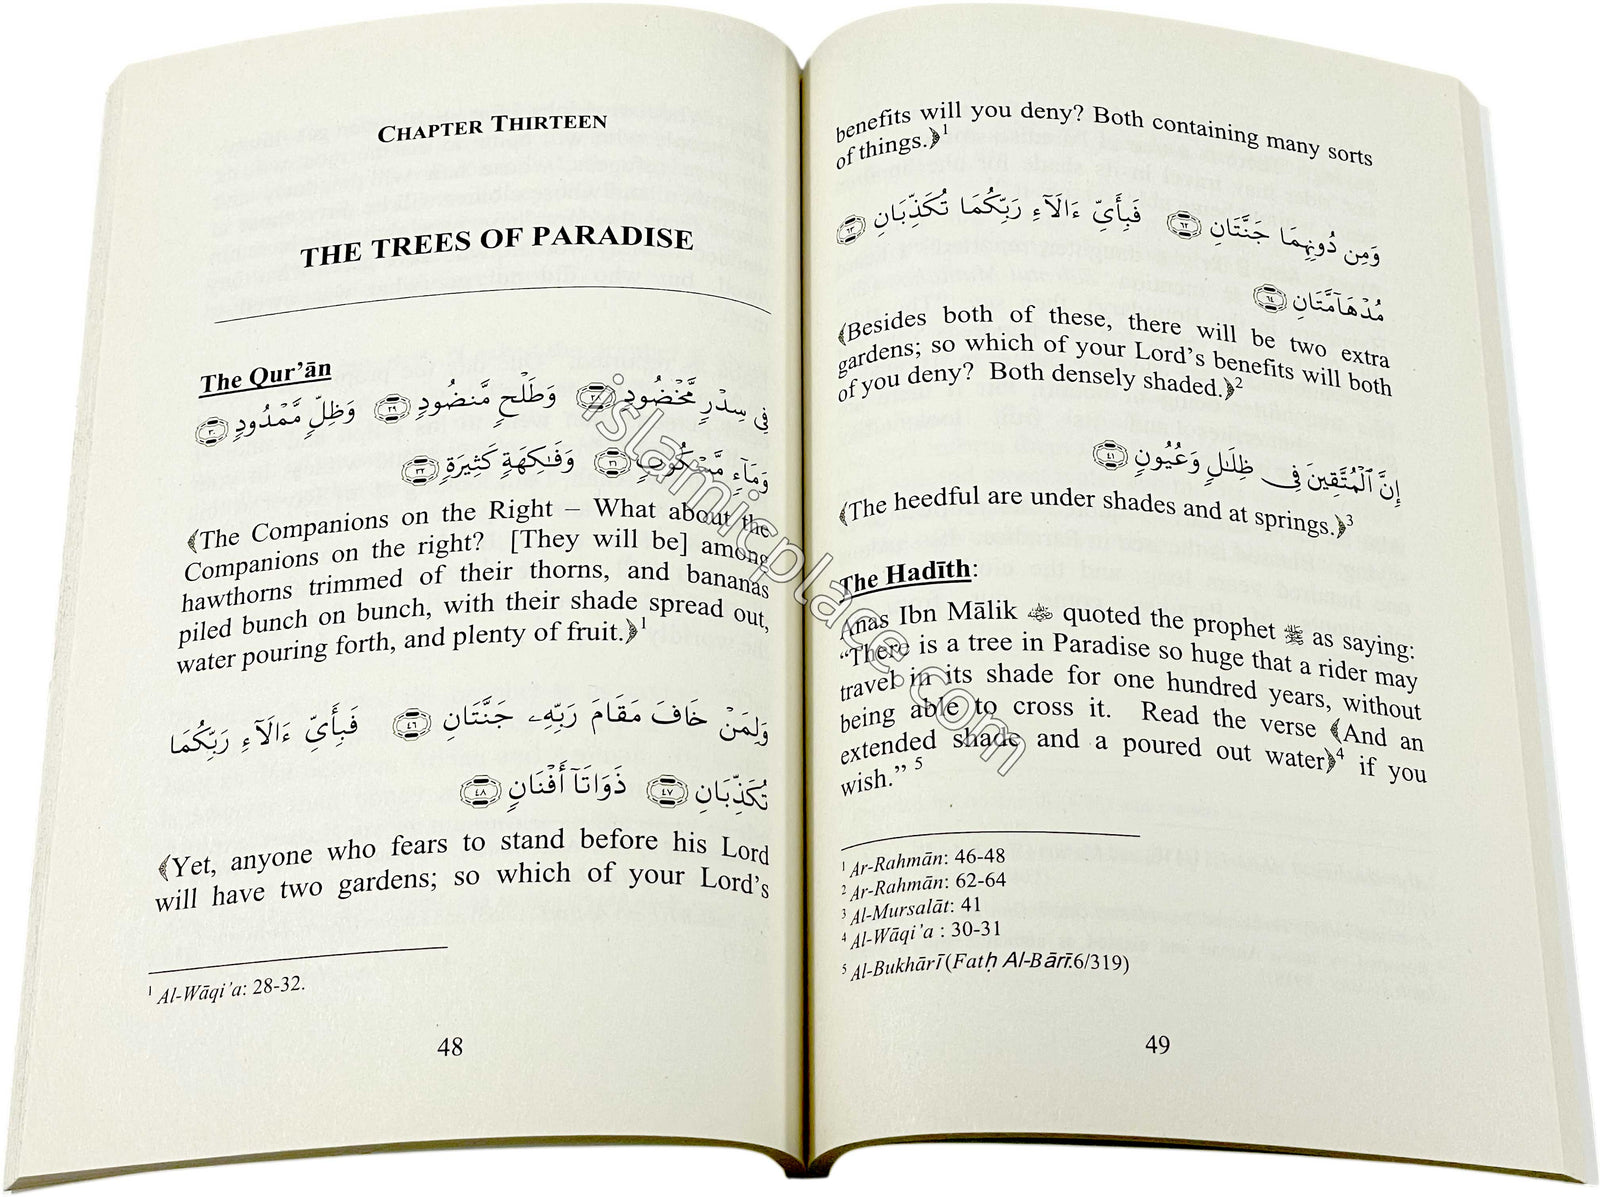 CHAPTER THIRTEEN
THE TREES OF PARADISE
The Qur’ān
فِي سِدْرٍ مَّخْضُودٍ ٢٨ وَطَلْحٍ مَّنضُودٍ ٢٩ وَظِلٍّ مَّمْدُودٍ ٣٠
وَمَآءٍ مَّسْكُوبٍ ٣١ وَفَٰكِهَةٍ كَثِيرَةٍ ٣٢
﴾The Companions on the Right – What about the
Companions on the right? [They will be] among
hawthorns trimmed of their thorns, and bananas
piled bunch on bunch, with their shade spread out,
water pouring forth, and plenty of fruit.﴿1
وَلِمَنْ خَافَ مَقَامَ رَبِّهِۦ جَنَّتَانِ ٤٦ فَبِأَيِّ ءَالَآءِ رَبِّكُمَا
تُكَذِّبَانِ ٤٧ ذَوَاتَآ أَفْنَانٍ ٤٨
﴾Yet, anyone who fears to stand before his Lord
will have two gardens; so which of your Lord’s
1 Al-Wāqi’a: 28-32.
48
benefits will you deny? Both containing many sorts
of things.﴿1
وَمِن دُونِهِمَا جَنَّتَانِ ٦٢ فَبِأَيِّ ءَالَآءِ رَبِّكُمَا تُكَذِّبَانِ ٦٣
مُدْهَآمَّتَانِ ٦٤
﴾Besides both of these, there will be two extra
gardens; so which of your Lord’s benefits will both
of you deny? Both densely shaded.﴿2
إِنَّ ٱلْمُتَّقِينَ فِي ظِلَٰلٍ وَعُيُونٍ ٤١
﴾The heedful are under shades and at springs.﴿3
The Hadīth:
Anas Ibn Mālik quoted the prophet ﷺ as saying:
“There is a tree in Paradise so huge that a rider may
travel in its shade for one hundred years, without
being able to cross it. Read the verse ﴾And an
extended shade and a poured out water﴿4 if you
wish.” 5
1 Ar-Rahmān: 46-48
2 Ar-Rahmān: 62-64
3 Al-Mursalāt: 41
4 Al-Wāqi’a : 30-31
5 Al-Bukhārī (Fatḥ Al-Bārī.6/319)
49
islamicplace.com